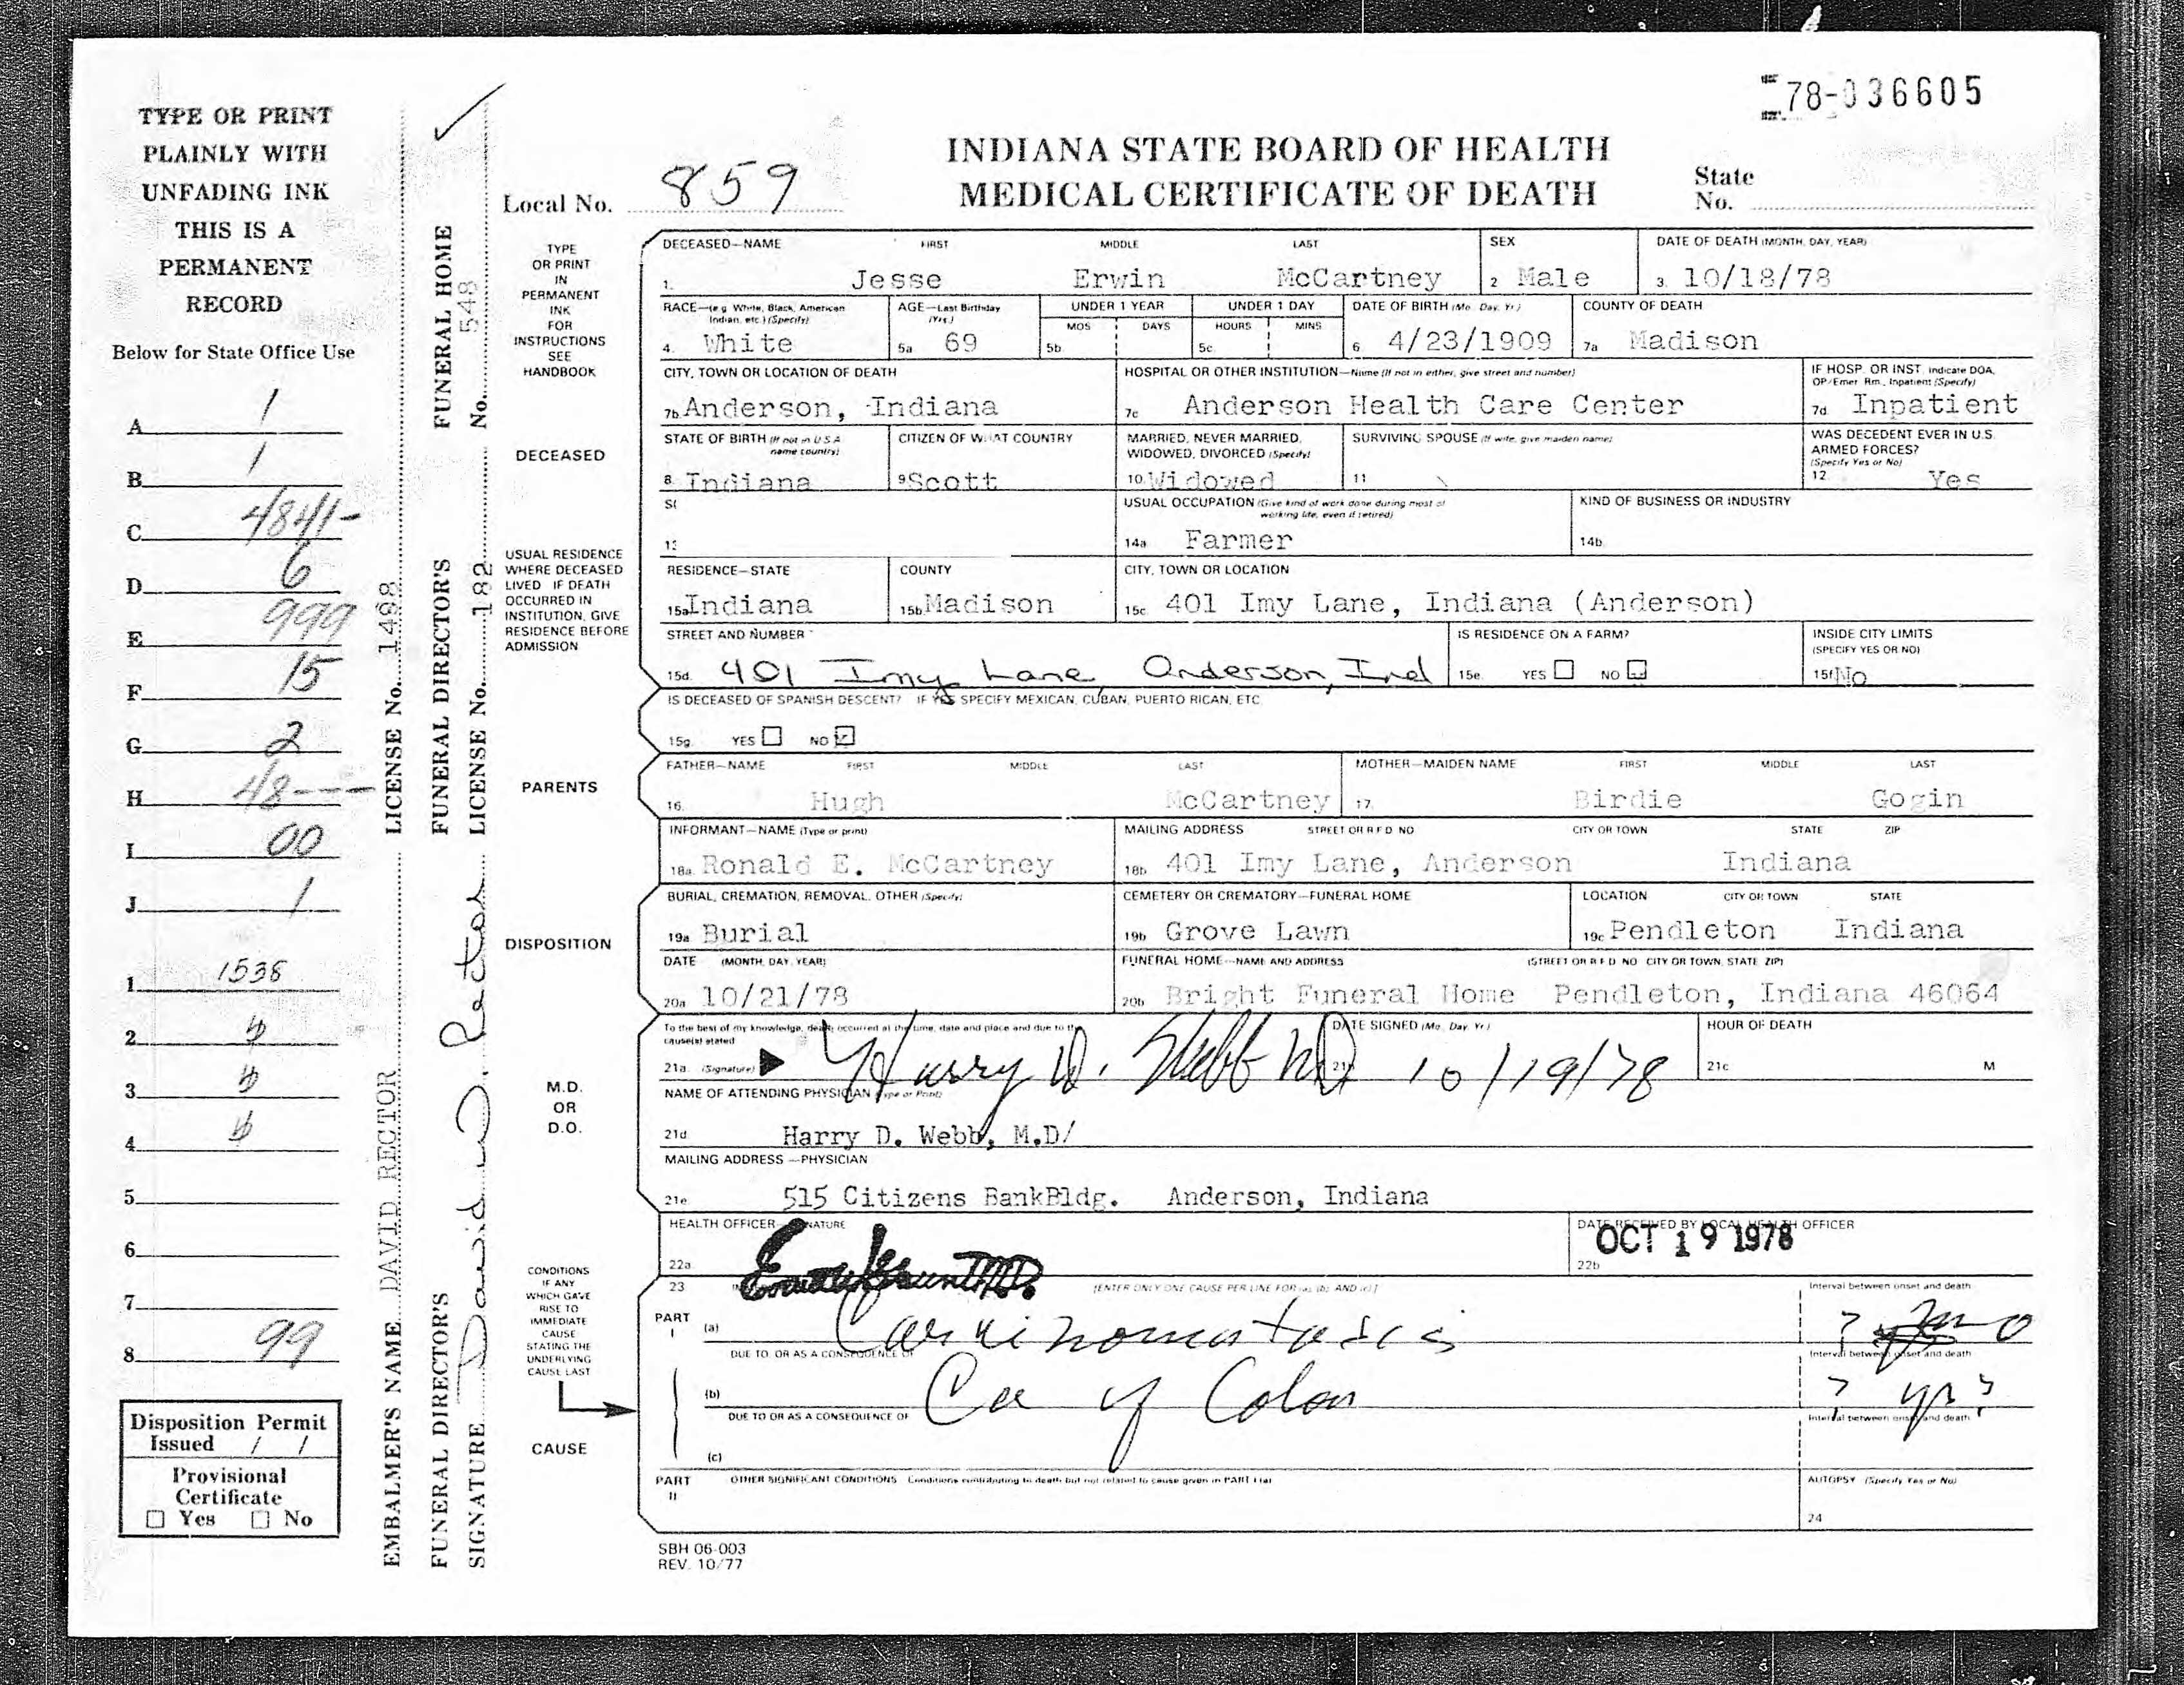 78-036605
TYPE OR PRINT
PLAINLY WITH
UNFADING INK
THIS IS A
PERMANENT
RECORD
Below for State Office Use
A 1
B 1
C 4841-
D 6
E 999
F 15
G 2
H 48---
I 00
J 1
1 1538
2
3
4
5
6
7
8 99
Disposition Permit
Issued / /
Provisional
Certificate
☐ Yes ☐ No
EMBALMER'S NAME DAVID RECTOR LICENSE No. 1498
FUNERAL DIRECTOR'S FUNERAL DIRECTOR'S FUNERAL HOME ✓
SIGNATURE David W. Rector LICENSE No. 182 No. 548
INDIANA STATE BOARD OF HEALTH
MEDICAL CERTIFICATE OF DEATH
Local No. 859
State
No.
TYPE
OR PRINT
IN
PERMANENT
INK
FOR
INSTRUCTIONS
SEE
HANDBOOK
DECEASED—NAME FIRST MIDDLE LAST SEX DATE OF DEATH (MONTH, DAY, YEAR)
1. Jesse Erwin McCartney 2 Male 3. 10/18/78
RACE—(e.g. White, Black, American UNDER 1 YEAR UNDER 1 DAY DATE OF BIRTH (Mo. Day, Yr.) COUNTY OF DEATH
Indian, etc.) (Specify) AGE—Last Birthday (Yrs.) MOS DAYS HOURS MINS
4. White 5a 69 5b 5c 6 4/23/1909 7a Madison
CITY, TOWN OR LOCATION OF DEATH HOSPITAL OR OTHER INSTITUTION—Name (If not in either, give street and number) IF HOSP. OR INST. Indicate DOA,
OP/Emer. Rm., Inpatient (Specify)
7b. Anderson, Indiana 7c Anderson Health Care Center 7d. Inpatient
DECEASED
STATE OF BIRTH (If not in U.S.A. name country) CITIZEN OF WHAT COUNTRY MARRIED, NEVER MARRIED, WIDOWED, DIVORCED (Specify) SURVIVING SPOUSE (If wife, give maiden name) WAS DECEDENT EVER IN U.S. ARMED FORCES? (Specify Yes or No)
8. Indiana 9 Scott 10. Widowed 11 12 Yes
USUAL OCCUPATION (Give kind of work done during most of working life, even if retired) KIND OF BUSINESS OR INDUSTRY
14a. Farmer 14b.
USUAL RESIDENCE
WHERE DECEASED
LIVED IF DEATH
OCCURRED IN
INSTITUTION, GIVE
RESIDENCE BEFORE
ADMISSION
RESIDENCE—STATE COUNTY CITY, TOWN OR LOCATION
15a. Indiana 15b. Madison 15c. 401 Imy Lane, Indiana (Anderson)
STREET AND NUMBER IS RESIDENCE ON A FARM? INSIDE CITY LIMITS
(SPECIFY YES OR NO)
15d. 401 Imy Lane, Anderson, Ind 15e. YES ☐ NO ☑ 15f No
IS DECEASED OF SPANISH DESCENT? IF YES SPECIFY MEXICAN, CUBAN, PUERTO RICAN, ETC.
15g. YES ☐ NO ☑
PARENTS
FATHER—NAME FIRST MIDDLE LAST MOTHER—MAIDEN NAME FIRST MIDDLE LAST
16. Hugh McCartney 17. Birdie Gogin
INFORMANT—NAME (Type or print) MAILING ADDRESS STREET OR R.F.D. NO. CITY OR TOWN STATE ZIP
18a. Ronald E. McCartney 18b. 401 Imy Lane, Anderson Indiana
DISPOSITION
BURIAL, CREMATION, REMOVAL, OTHER (Specify) CEMETERY OR CREMATORY—FUNERAL HOME LOCATION CITY OR TOWN STATE
19a Burial 19b Grove Lawn 19c Pendleton Indiana
DATE (MONTH, DAY, YEAR) FUNERAL HOME—NAME AND ADDRESS (STREET OR R.F.D. NO. CITY OR TOWN, STATE ZIP)
20a 10/21/78 20b Bright Funeral Home Pendleton, Indiana 46064
M.D.
OR
D.O.
To the best of my knowledge, death occurred at the time, date and place and due to the
cause(s) stated DATE SIGNED (Mo., Day, Yr.) HOUR OF DEATH
21a. (Signature) Harry D. Webb MD 21b 10/19/78 21c M
NAME OF ATTENDING PHYSICIAN (Type or Print)
21d Harry D. Webb, M.D/
MAILING ADDRESS—PHYSICIAN
21e 515 Citizens BankBldg. Anderson, Indiana
HEALTH OFFICER—SIGNATURE DATE RECEIVED BY LOCAL HEALTH OFFICER
22a OCT 19 1978
22b
CONDITIONS
IF ANY
WHICH GAVE
RISE TO
IMMEDIATE
CAUSE
STATING THE
UNDERLYING
CAUSE LAST
CAUSE
23 (ENTER ONLY ONE CAUSE PER LINE FOR (a), (b), AND (c).) Interval between onset and death
PART
I (a) Carcinomatosis ?
DUE TO, OR AS A CONSEQUENCE OF Interval between onset and death
(b) Ca of Colon ? yr?
DUE TO OR AS A CONSEQUENCE OF Interval between onset and death
(c)
PART
II OTHER SIGNIFICANT CONDITIONS Conditions contributing to death but not related to cause given in PART I (a) AUTOPSY (Specify Yes or No)
24
SBH 06-003
REV. 10/77